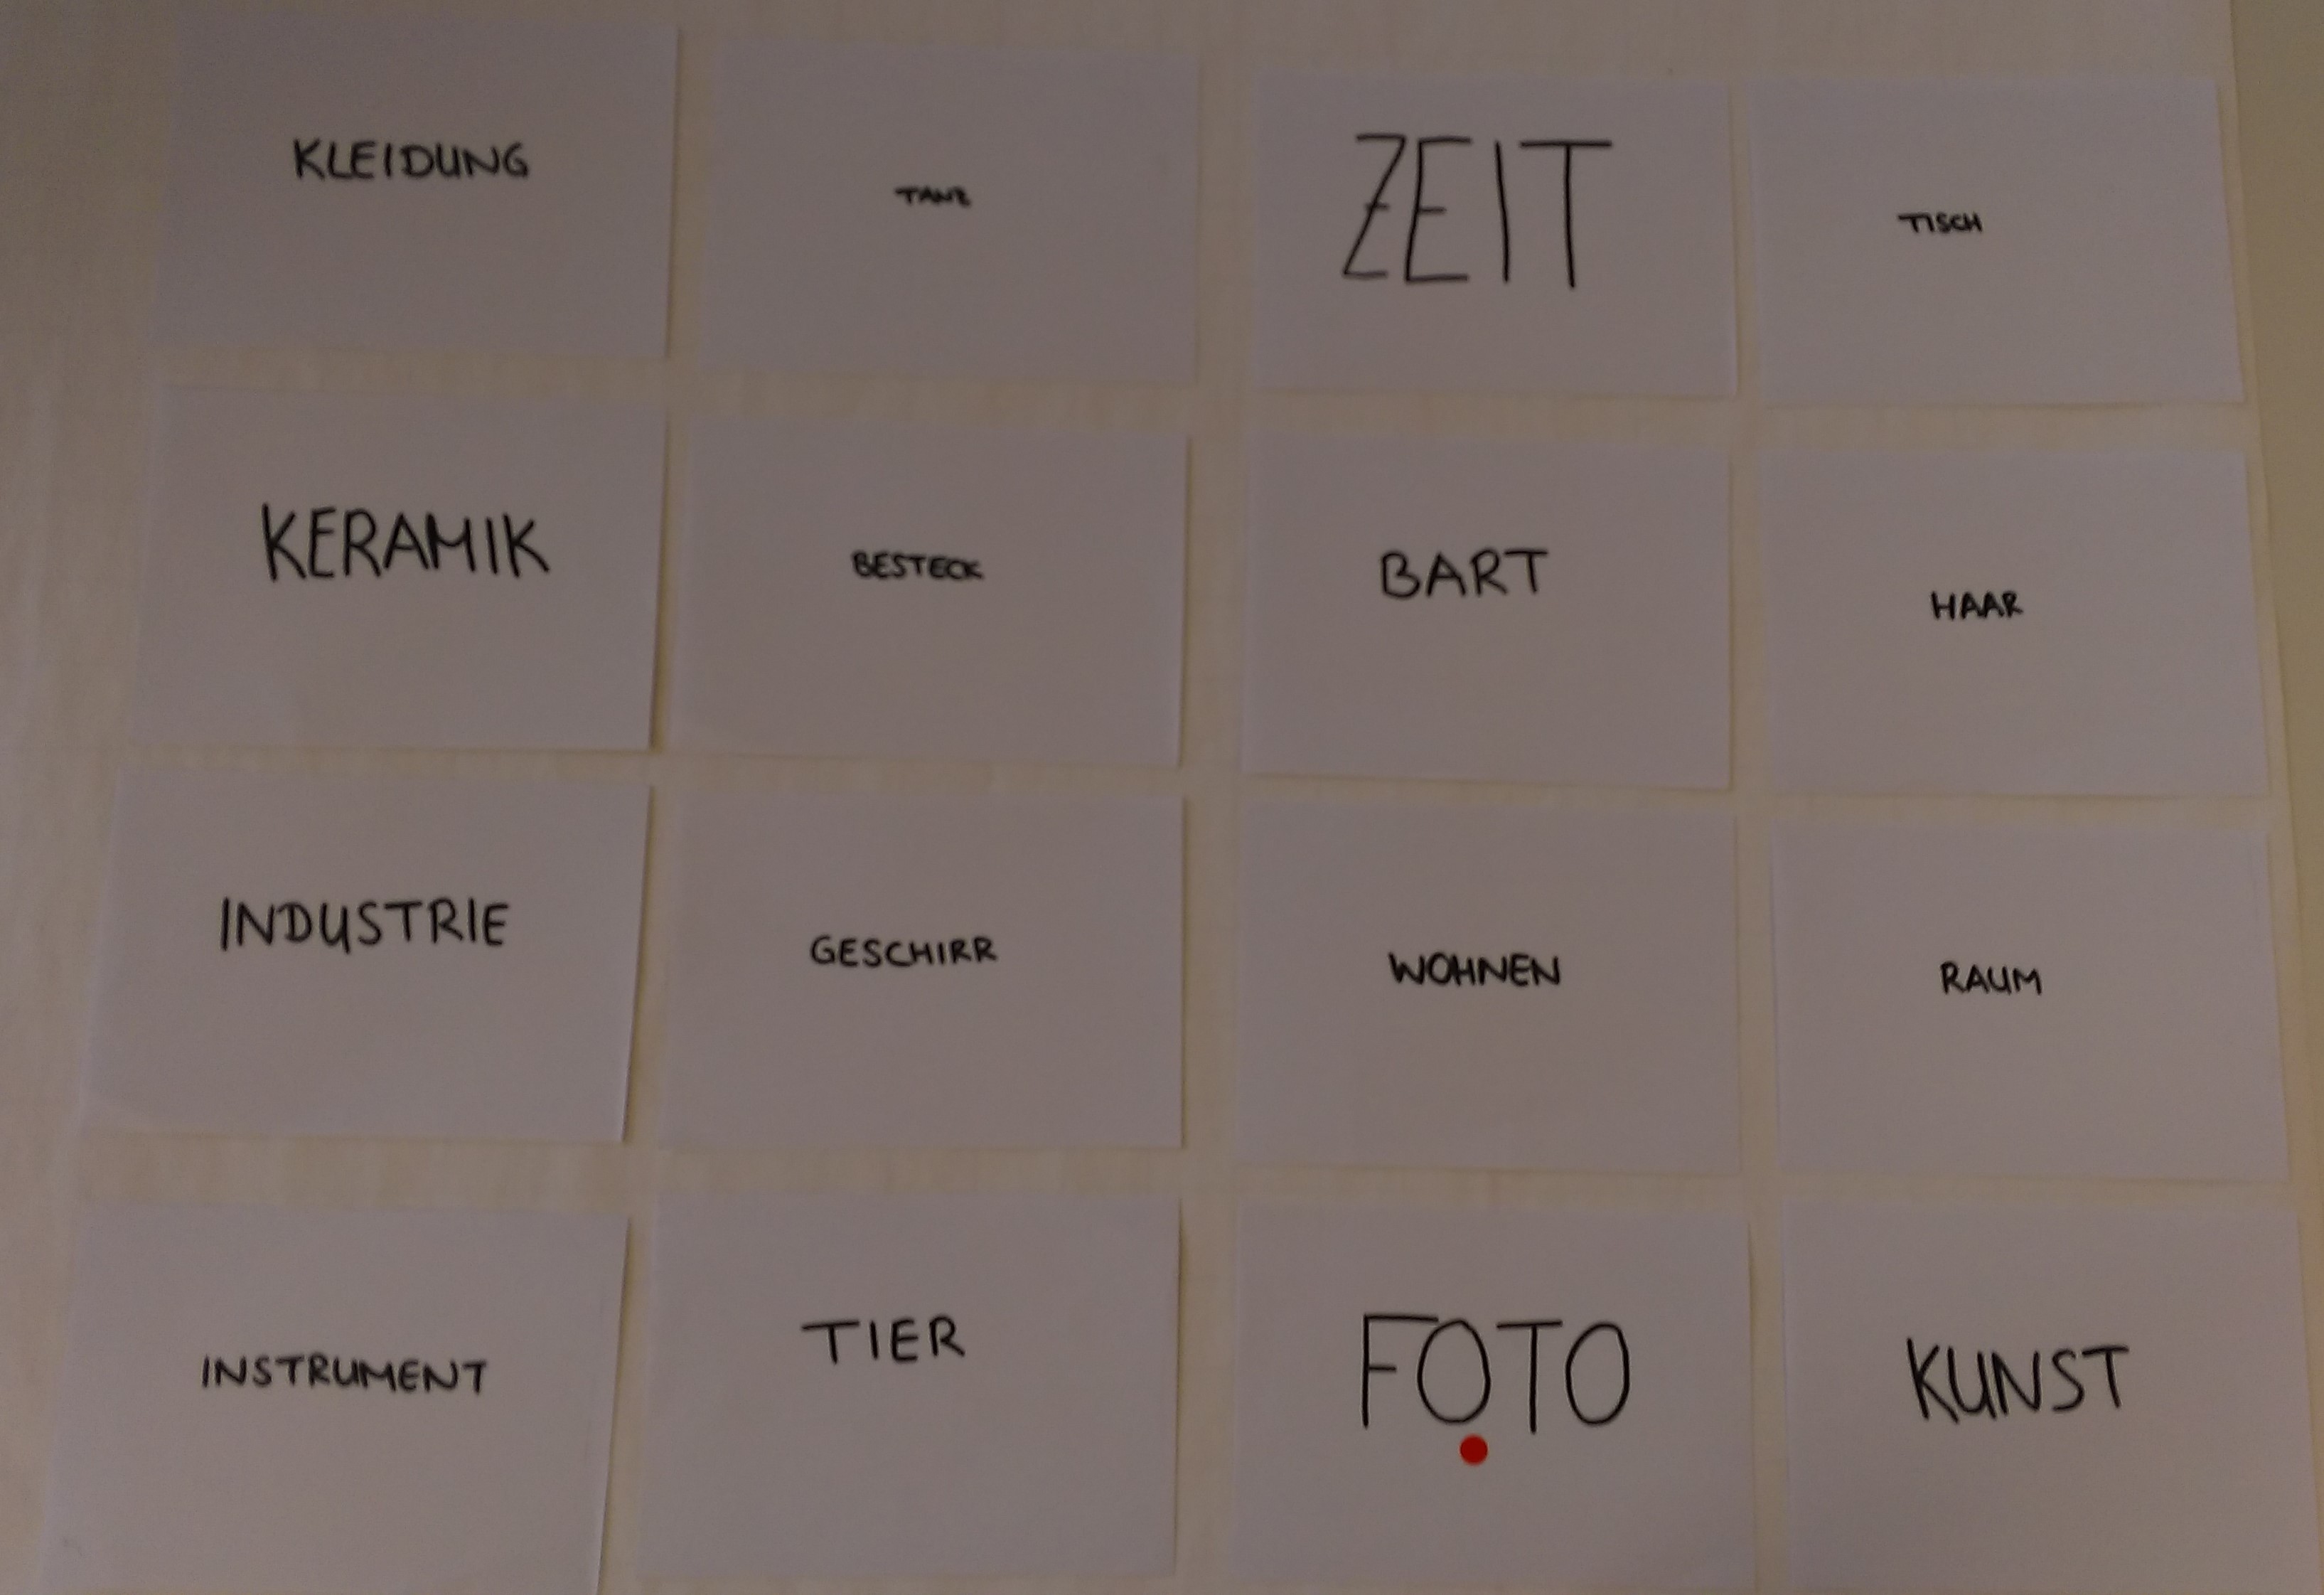 KLEIDUNG
TANZ
ZEIT
TISCH
KERAMIK
BESTECK
BART
HAAR
INDUSTRIE
GESCHIRR
WOHNEN
RAUM
INSTRUMENT
TIER
FOTO
KUNST